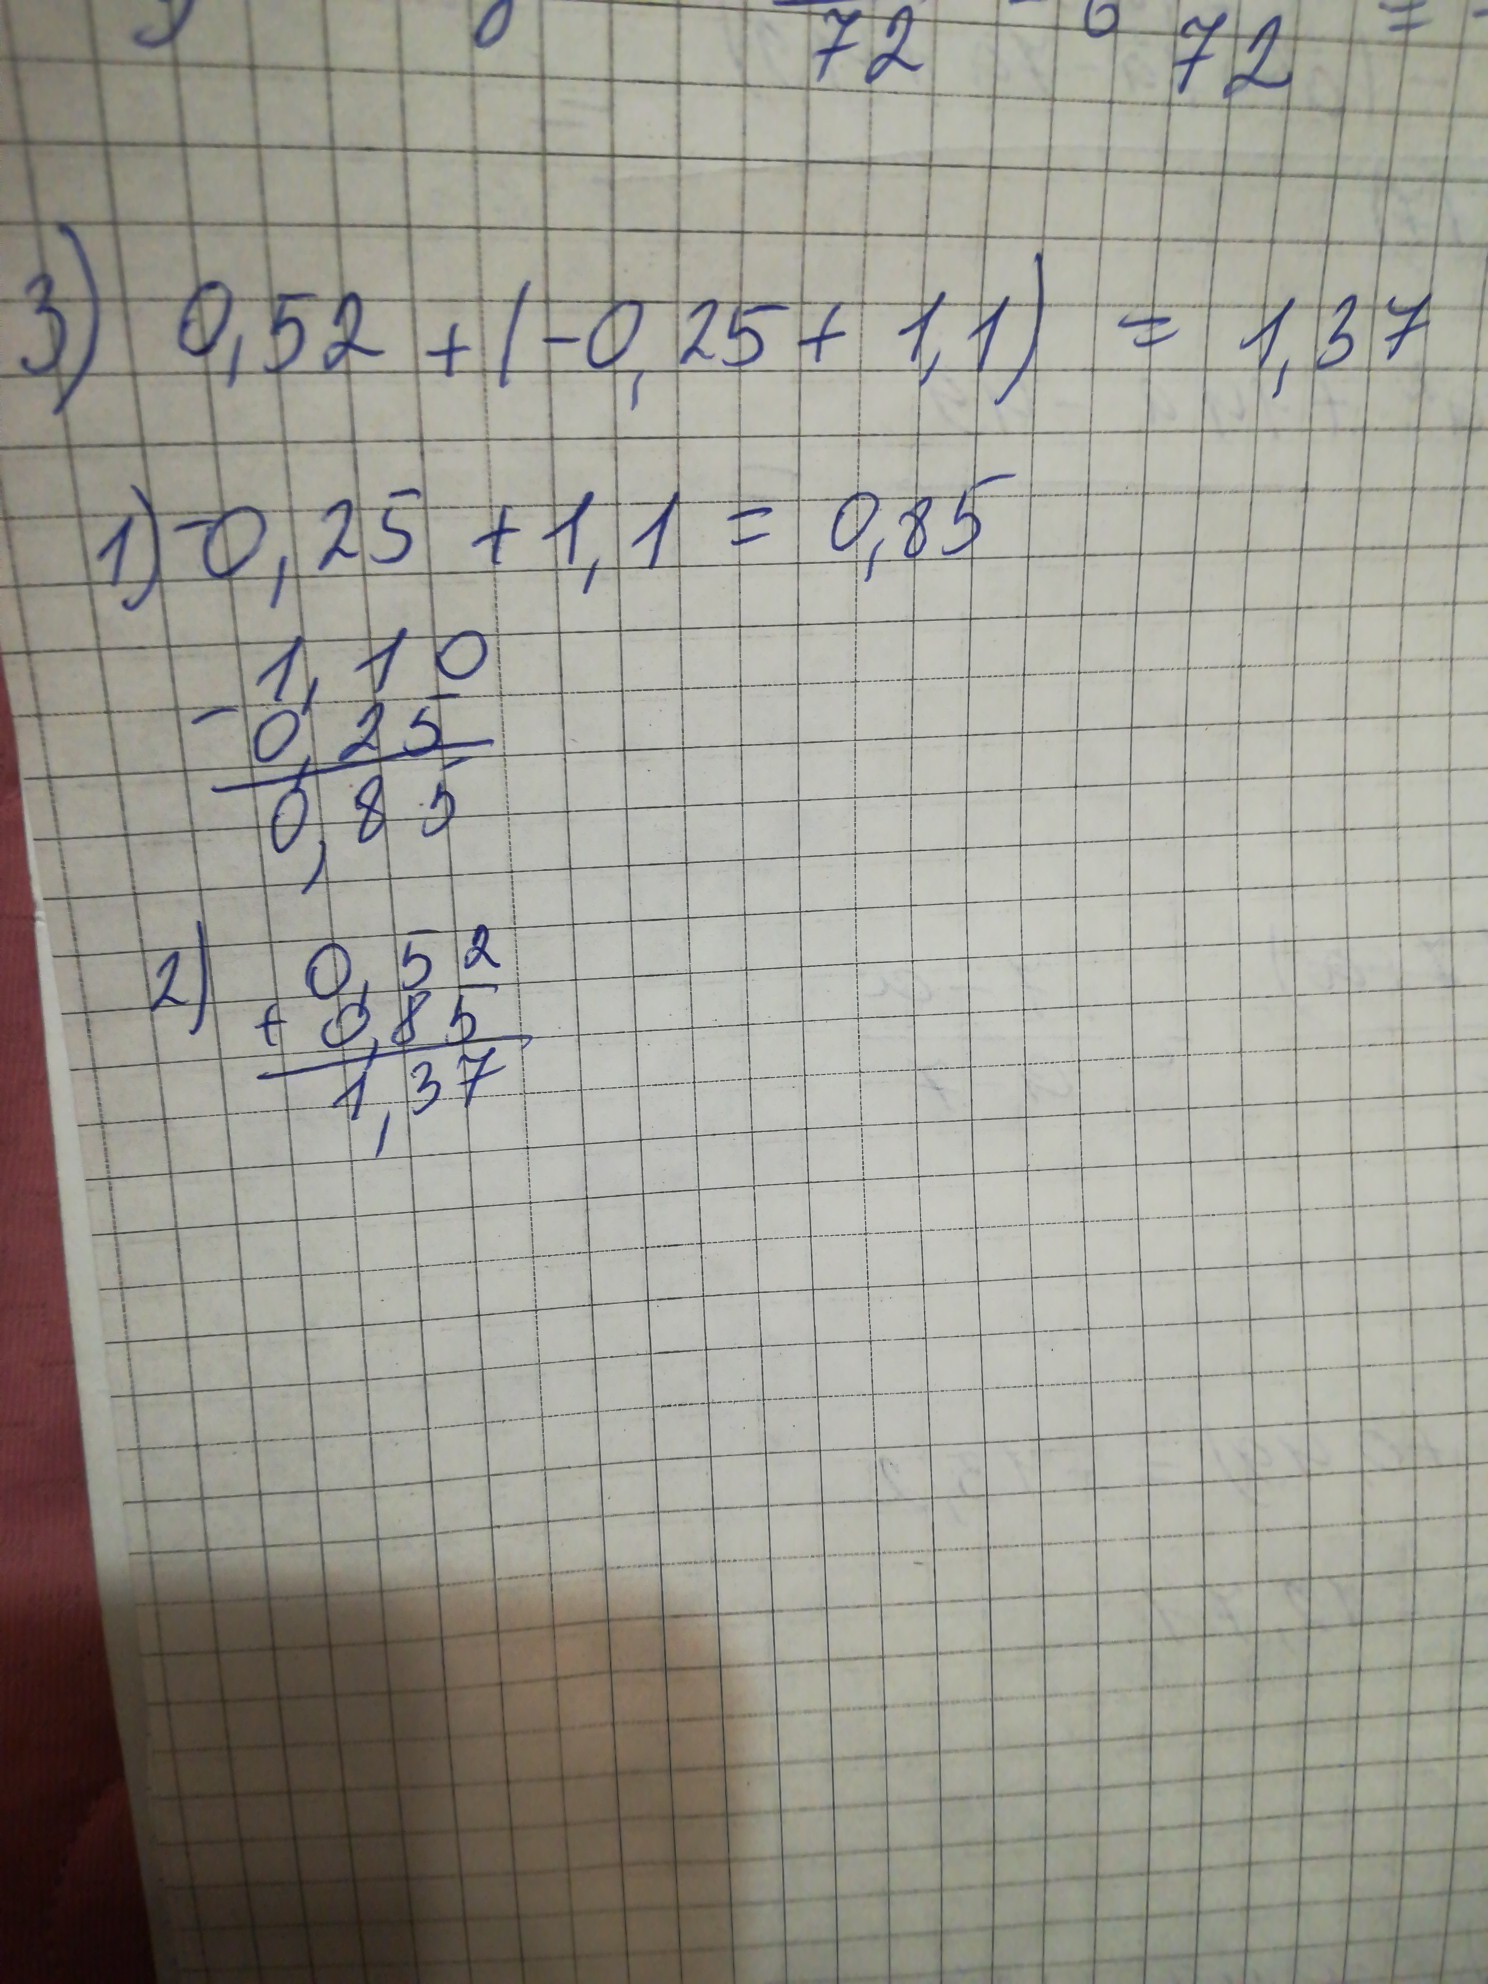 72 72 =
3) 0,52 + (-0,25 + 1,1) = 1,37
1) -0,25 + 1,1 = 0,85
1,10
- 0,25
0,85
2) 0,52
+ 0,85
1,37